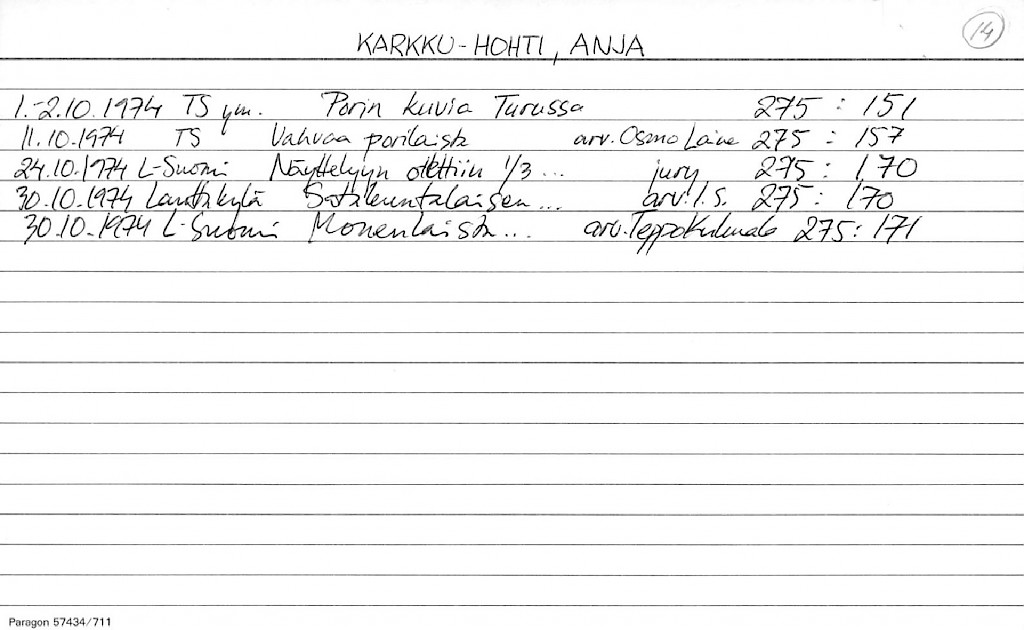 14
KARKKU-HOHTI, ANJA
1.-2.10.1974 TS ym. Porin kuvia Turussa 275 : 151
11.10.1974 TS Vahvaa porilaista arv. Osmo Laine 275 : 157
24.10.1974 L-Suomi Näyttelyyn otettiin 1/3 ... jury 275 : 170
30.10.1974 Lauttakylä Satakuntalaisen ... arv. I.S. 275 : 170
30.10.1974 L-Suomi Monenlaista ... arv. Teppo 275 : 171
Paragon 57434/711